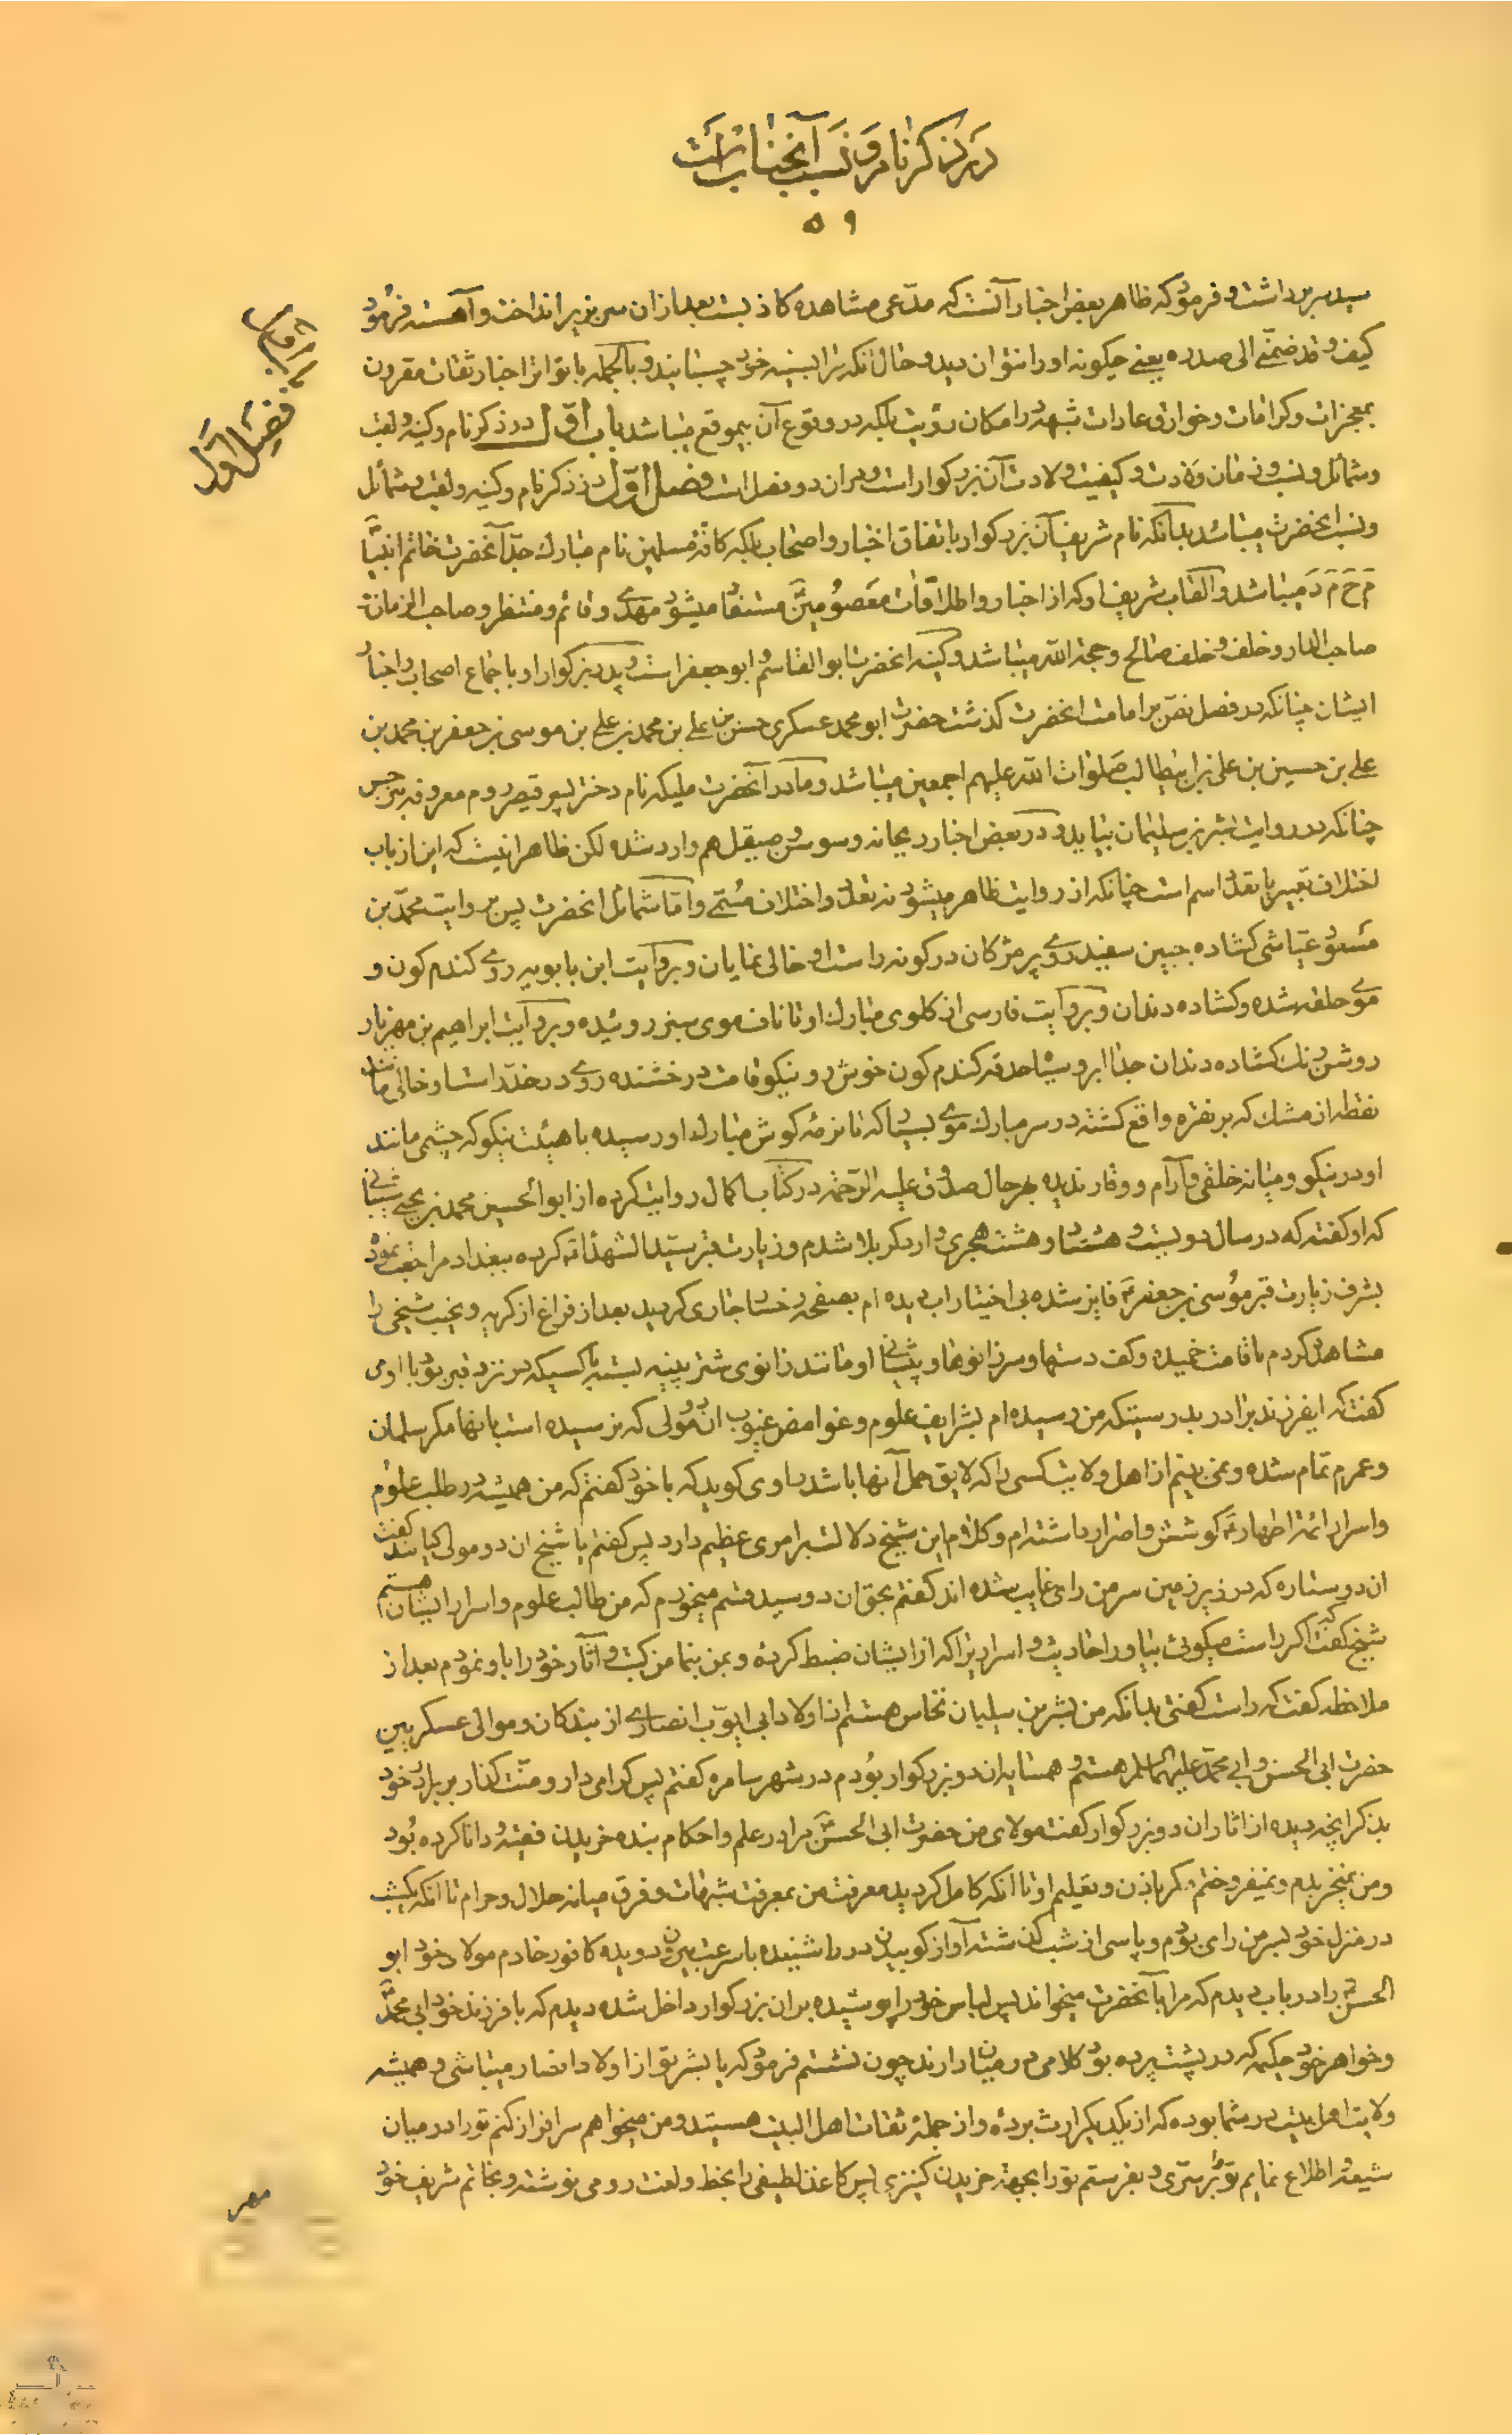 در ذکر نام و نسب آنجناب است
۵۹
سید سر برداشت و فرمود که ظاهر بعض اخبار آنست که مدّعی مشاهده کاذبست بعد از ان سر بزیر انداخت و آهسته فرمود
کیف و قد ضمّنی الی صدره یعنی چکونه او را نتوان دید و حال آنکه مرا بسینه خود چسبانید و بالجمله با تواتر اخبار ثقات مقرون
بمعجزات و کرامات و خوارق عادات شبهه در امکان رؤیت بلکه در وقوع آن بیموقع میباشد باب اوّل در ذکر نام و کنیه و لقب
و شمائل و نسب و زمان ولادت و کیفیت ولادت آن بزرکوار است و در ان دو فصل است فصل اوّل در ذکر نام و کنیه و لقب و شمائل
و نسب انحضرت میباشد بدانکه نام شریف آن بزرکوار باتفاق اخبار و اصحاب بلکه کافهٔ مسلمین نام مبارک جدّ آنحضرت خاتم انبیا
مَ حَ مَ دَ میباشد و القاب شریف او که از اخبار و اطلاقات معصومین مستفاد میشود مهدی و قائم و منتظر و صاحب الزمان و
صاحب الدار و خلف و خلف صالح و حجة الله میباشد و کنیه انحضرت ابو القاسم و ابو جعفر است و پدر بزرکوار او باجماع اصحاب و اخبار
ایشان چنانکه در فصل نصّ بر امامت انحضرت کذشت حضرت ابو محمد عسکری حسن بن علی بن محمد بن علی بن موسی بن جعفر بن محمد بن
علی بن حسین بن علی بن ابیطالب صلوات الله علیهم اجمعین میباشد و مادر آنحضرت ملیکه نام دختر پسر قیصر روم معروفه بنرجس
چنانکه در روایت بشر بن سلیمان بیاید و در بعض اخبار ریحانه و سوسن و صیقل هم وارد شده لکن ظاهر انیست که این از باب
اختلاف تعبیر یا تعدّد اسم است چنانکه از روایت ظاهر میشود نه تعدّد و اختلاف مسمّی و امّا شمائل انحضرت پس بروایت محمّد بن
مسعود عیّاشی کشاده جبین سفید روی پر مژکان در کونه راست او خالی نمایان و بروایت ابن بابویه روی کندم کون و
موی حلقه شده و کشاده دندان و بروایت فارسی از کلوی مبارک او تا ناف موی سبز روئیده و بروایت ابراهیم بن مهزیار
روشن رنک کشاده دندان جدا ابرو سیاه حدقه کندم کون خوش رو نیکو قامت درخشنده روی در خدّ راست او خالی مانند
نقطه از مشک که بر نقره واقع کشته در سر مبارک موی بسیار که تا نرمهٔ کوش مبارک او رسیده با هیئت نیکو که چشمی مانند
او در نیکو و میانه خلقی و آرام و وقار ندیده بهر حال صدوق علیه الرّحمه در کتاب اکمال روایت کرده از ابو الحسین محمد بن یحیی شیبانی
که او کفته که در سال دویست و هشتاد و هشت هجری وارد کربلا شدم و زیارت قبر سیّد الشهداء کرده ببغداد مراجعت نمود
بشرف زیارت قبر موسی بن جعفر فایز شده بی اختیار اب دیده ام بصفحه رخسار جاری کردید بعد از فراغ از کریه و نحیب شیخی را
مشاهده کردم با قامت خمیده و کف دستها و سر زانوها و پیشانی او مانند زانوی شتر پینه بسته بکسیکه در نزد قبر بود با او می
کفت که ایفرزند برادر بدرستیکه من رسیده ام بشرایف علوم و غوامض غیوب ان دو مولی که نرسیده است بانها مکر سلمان
و عمرم تمام شده و نمی بینم از اهل ولایت کسی را که لایق حمل آنها باشد راوی کوید که با خود کفتم که من همیشه در طلب علوم
و اسرار ائمه اطهار کوشش و اصرار داشته ام و کلام این شیخ دلالت بر امری عظیم دارد پس کفتم یا شیخ ان دو مولی کیانند کفت
ان دو ستاره که در زیر زمین سر من رای غایب شده اند کفتم بحق ان دو سید قسم میخورم که من طالب علوم و اسرار ایشان هستم
شیخ کفت که اکر راست میکوئی بیاور احادیث و اسراریرا که از ایشان ضبط کرده و بمن بنما من کتب و آثار خود را باو نمودم بعد از
ملاحظه کفت که راست کفتی بدانکه من بشر بن سلیمان نخّاس هستم از اولاد ابی ایوب انصاری از بندکان و موالی عسکریین
حضرت ابی الحسن و ابی محمّد علیهما السلم هستم و همسایه ان دو بزرکوار بودم در شهر سامره کفتم پس کرامی دار و منّت کذار بر برادر خود
بذکر انچه دیده از اثار ان دو بزرکوار کفت مولای من حضرت ابی الحسن مرا در علم و احکام بنده خریدن فقیه و دانا کرده بود
و من نمیخریدم و نمیفروختم مکر باذن و تعلیم او تا انکه کامل کردید معرفت من بمعرفت شبهات و فرق میانه حلال و حرام تا انکه یکشب
در منزل خود بسر من رای بودم و پاسی از شب کذشته آواز کوبیدن در را شنیده باسرعت بیرون دویده کافور خادم مولا خود ابو
الحسن را در باب دیدم که مرا بآنحضرت میخواند پس لباس خود را پوشیده بران بزرکوار داخل شده دیدم که با فرزند خود ابی محمّد
و خواهر خود حکیمه که در پشت پرده بود کلامی در میان دارند چون نشستم فرمود که یا بشر تو از اولاد انصار میباشی و همیشه
ولایت اهل بیت در شما بوده که از یکدیکر ارث برده و از جملهٔ ثقات اهل البیت هستید و من میخواهم سرافراز کنم تو را در میان
شیعه و اطلاع نمایم تو را بر سرّی و بفرستم تو را بجهة خریدن کنیزی پس کاغذ لطیفی را بخط و لغت رومی نوشته و بخاتم شریف خود
مهر
فصل اوّل